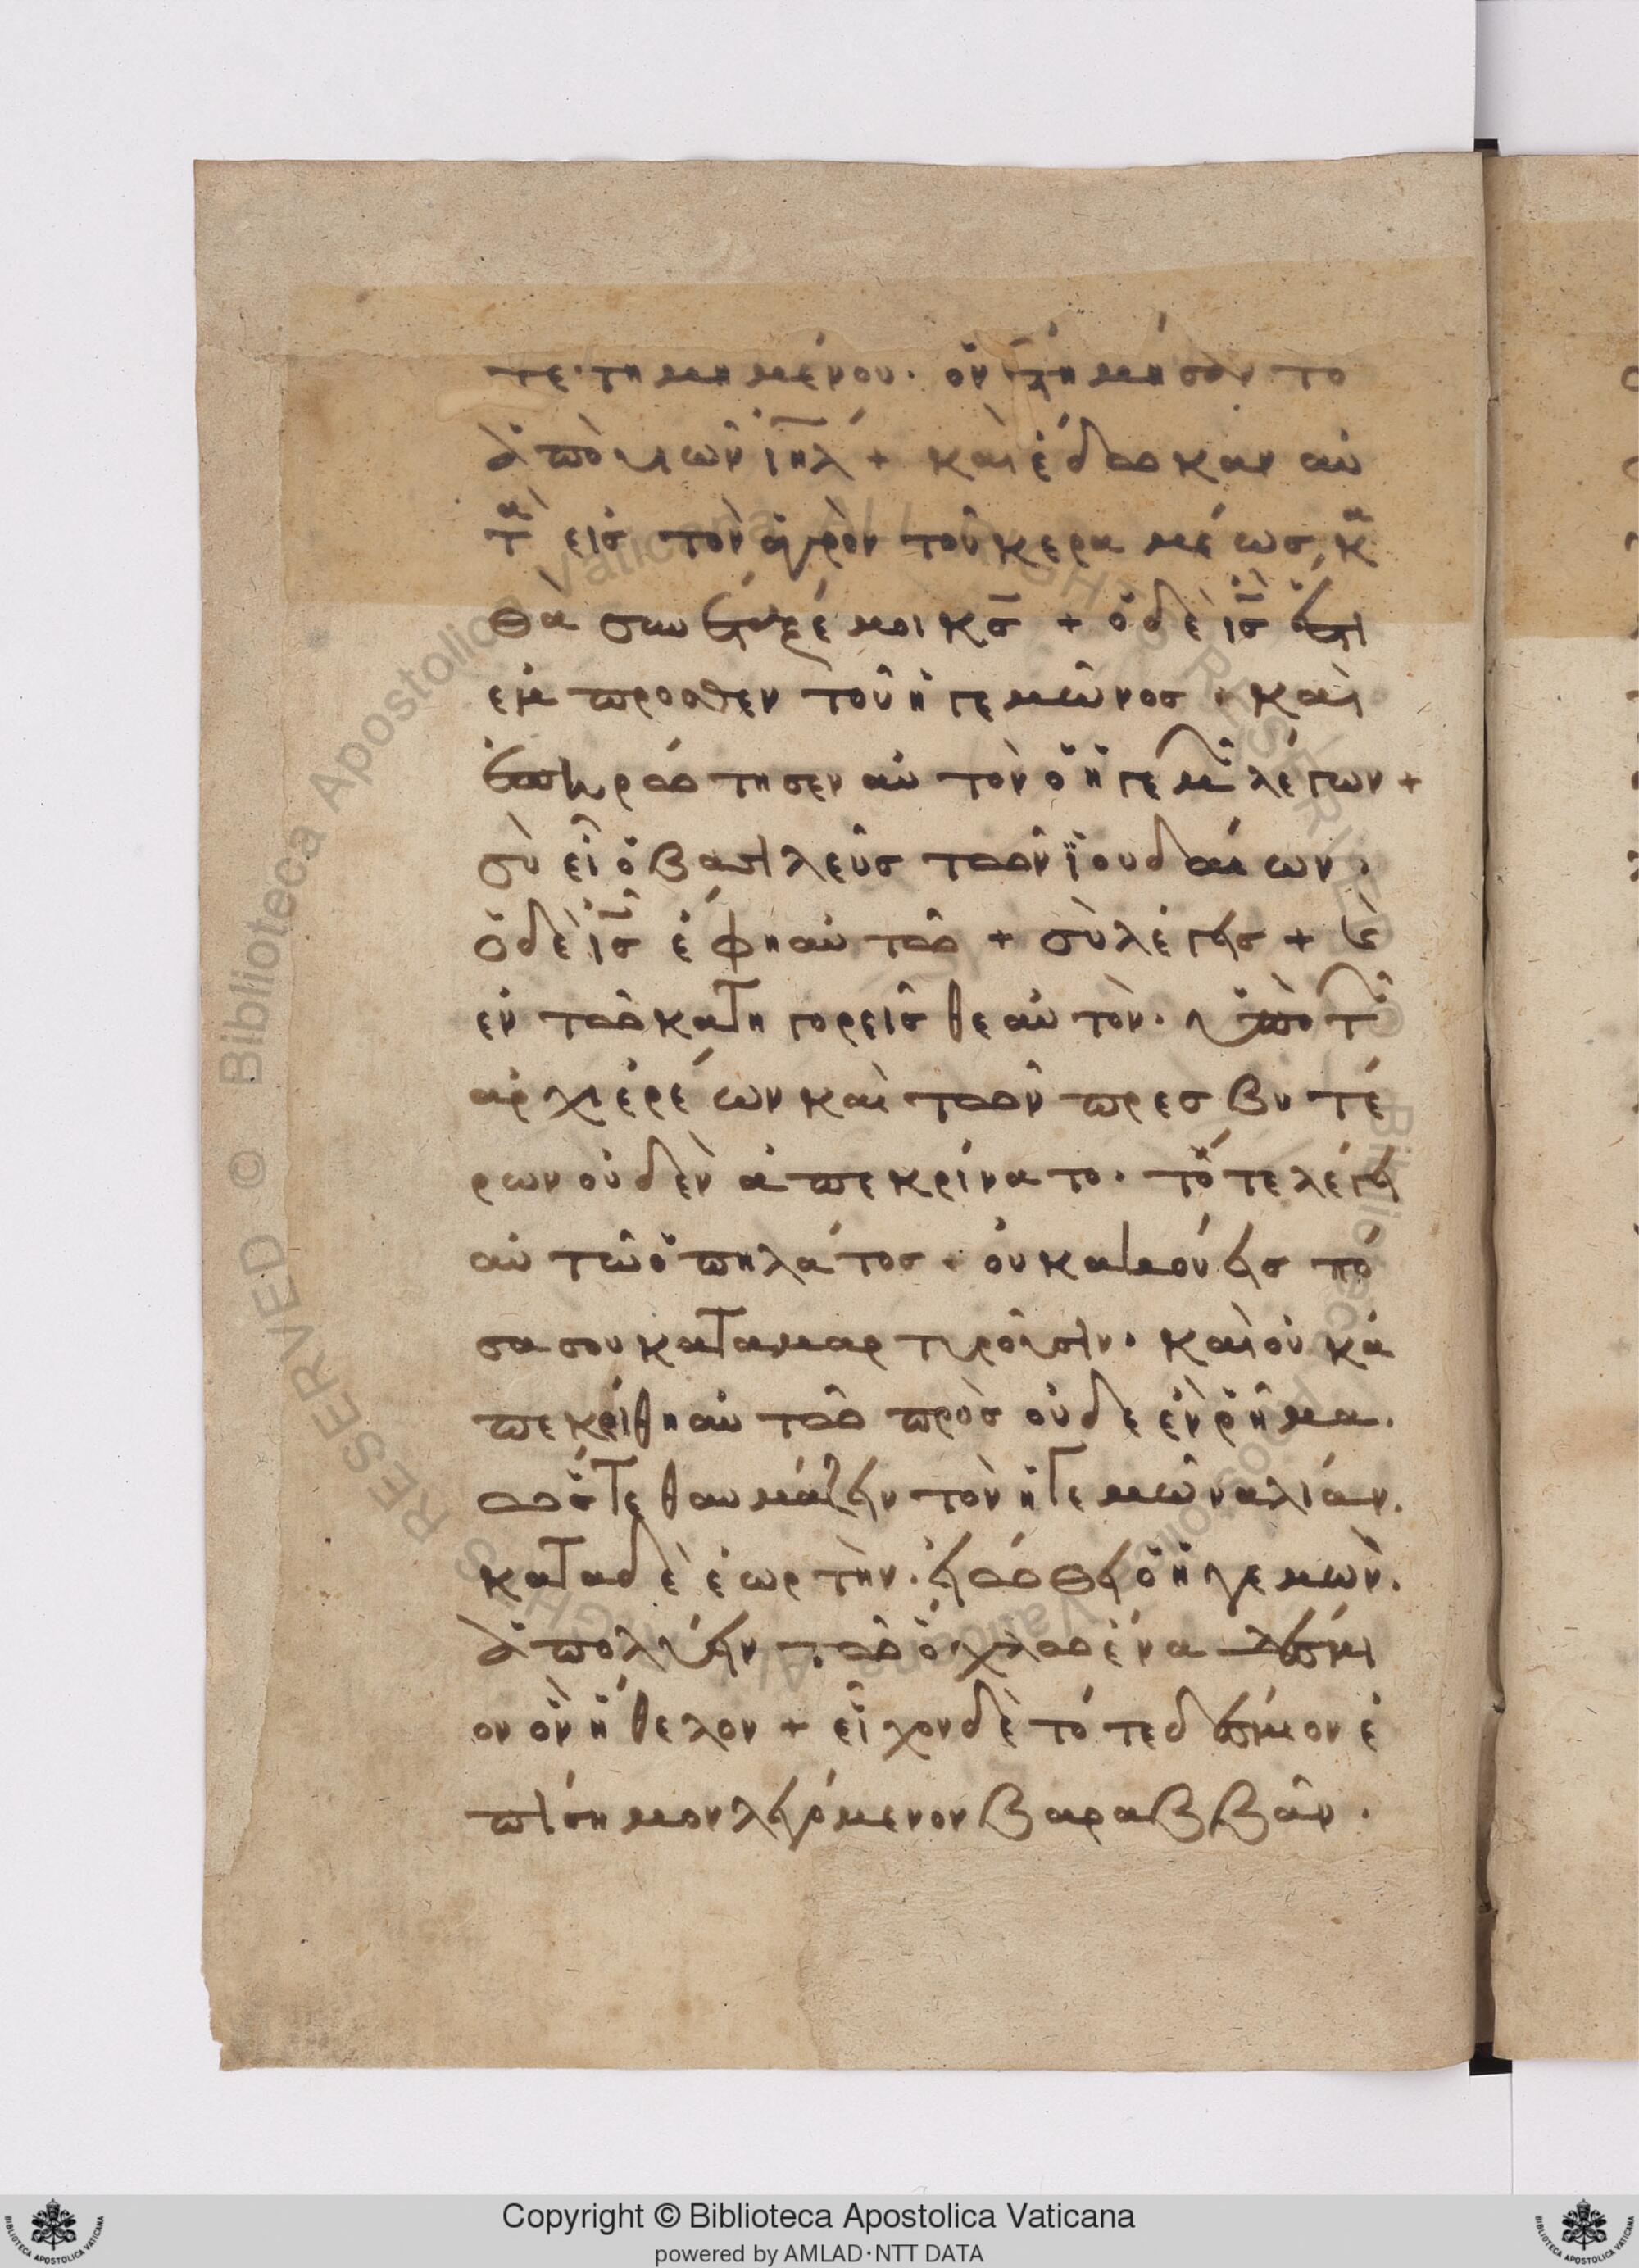 τε·τημημένου· ὃν ἐτημήσαντο
ἀπὸ υἱῶν ἰη̅λ + καὶ ἔδωκαν αὐ
τ̅ὰ εἰς τὸν ἀγρὸν τοῦ κεραμέως, κ̅α
θὰ συνέταξέ μοι κ̅ς + ὁ δὲ ι̅ς ἔστι
ἔμπροσθεν τοῦ ἡγεμῶνος · καὶ
ἐπηρώτησεν αὐτὸν ὁ ἡγεμ̅ λέγων +
σὺ εἶ ὁ βασιλεῦς τῶν ἰουδαίων·
ὁ δὲ ι̅ς ἔφη αὐτῶ + σὺ λέγεις + κ̀
ἐν τῶ κατηγορεῖσθε αὐτὸν· ὑπὸ τ̅
ἀρχιερέων καὶ τῶν πρεσβυτέ
ρων οὐδὲν ἀπεκρίνατο· τότε λέγει
αὐτῶ ὁ πηλάτος · οὐκ ακούεις πό
σα σου καταμαρτυροῦσιν· καὶ οὐκ ἀ
πεκρίθη αὐτῶ πρὸς οὐδε ἐν ῥῆμα·
ὥστε θαυμάζειν τὸν ἡγεμῶνα λιάν·
κατα δὲ ἑωρτὴν· εἰώθει ὁ ἡγεμὼν·
ἀπολύειν τῶ ὄχλω ἕνα δέσμι
ον ὃν ἤθελον + εἶχον δὲ τότε δέσμιον ἐ
πίσημον λεγόμενον βαραββᾶν·
Biblioteca Apostolica Vaticana ALL RIGHTS RESERVED ©
Copyright © Biblioteca Apostolica Vaticana
powered by AMLAD·NTT DATA